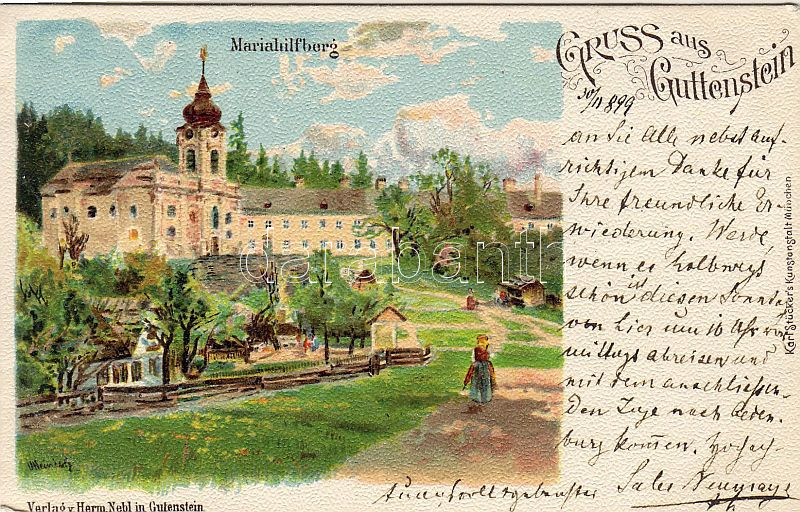 Mariahilfberg
GRUSS aus
Guttenstein
30/11 899
an Sie Alle nebst auf-
richtigem Danke für
Ihre freundliche Er-
wiederung. Werde,
wenn es halbwegs
schön ist diesen Sonntag
von hier um 10 Uhr vor
mittags abreisen und
mit dem anschließen-
den Zuge nach Oeden-
burg kommen. Hochach-
Karl Stücker's Kunstanstalt München
darabanth
Verlag v. Herm. Nebl in Gutenstein